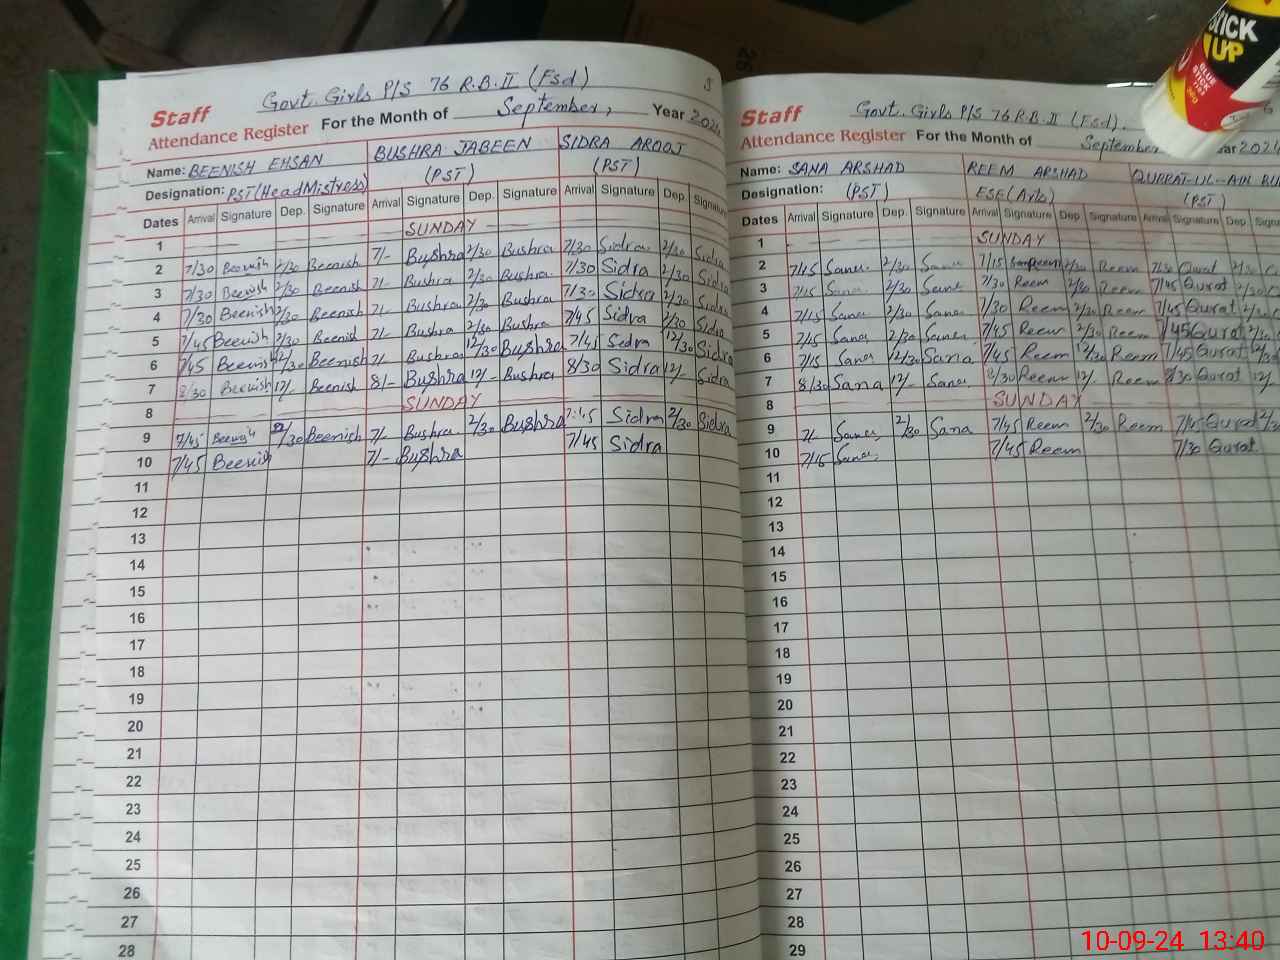 Govt. Girls P/S 76 R.B. II (Fsd) 5
Staff
Attendance Register For the Month of September, Year 2024
Name: BEENISH EHSAN BUSHRA JABEEN SIDRA AROOJ
Designation: PST(HeadMistress) (PST) (PST)
Dates Arrival Signature Dep. Signature Arrival Signature Dep. Signature Arrival Signature Dep. Signature
1 SUNDAY
2 7/30 Beenish 2/30 Beenish 7/- Bushra 2/30 Bushra 7/30 Sidra 2/30 Sidra
3 7/30 Beenish 2/30 Beenish 7/- Bushra 2/30 Bushra 7/30 Sidra 2/30 Sidra
4 7/30 Beenish 2/30 Beenish 7/- Bushra 2/30 Bushra 7/30 Sidra 2/30 Sidra
5 7/45 Beenish 2/30 Beenish 7/- Bushra 2/30 Bushra 7/45 Sidra 2/30 Sidra
6 7/45 Beenish 12/30 Beenish 7/- Bushra 12/30 Bushra 7/45 Sidra 12/30 Sidra
7 8/30 Beenish 12/- Beenish 8/- Bushra 12/- Bushra 8/30 Sidra 12/- Sidra
8 SUNDAY
9 7/45 Beenish 2/30 Beenish 7/- Bushra 2/30 Bushra 7:45 Sidra 2/30 Sidra
10 7/45 Beenish 7/- Bushra 7/45 Sidra
11
12
13
14
15
16
17
18
19
20
21
22
23
24
25
26
27
28
Govt. Girls P/S 76 R.B. II (Fsd).
Staff
Attendance Register For the Month of September 2024
Name: SANA ARSHAD REEM ARSHAD QURRAT-UL-AIN
Designation: (PST) ESE(Arts) (PST)
Dates Arrival Signature Dep. Signature Arrival Signature Dep. Signature Arrival Signature Dep.
1 SUNDAY
2 7/15 Sana 2/30 Sana 7/15 Reem 2/30 Reem 7/30 Qurat 2/30
3 7/15 Sana 2/30 Sana 7/30 Reem 2/30 Reem 7/45 Qurat 2/30
4 7/15 Sana 2/30 Sana 7/30 Reem 2/30 Reem 7/45 Qurat
5 7/15 Sana 2/30 Sana 7/45 Reem 2/30 Reem 7/45 Qurat
6 7/15 Sana 12/30 Sana 7/45 Reem 12/30 Reem 7/45 Qurat
7 8/30 Sana 12/- Sana 8/30 Reem 12/- Reem 8/30 Qurat 12/-
8 SUNDAY
9 7/- Sana 2/30 Sana 7/45 Reem 2/30 Reem 7/45 Qurat
10 7/15 Sana 7/45 Reem 7/30 Qurat
11
12
13
14
15
16
17
18
19
20
21
22
23
24
25
26
27
28
29
STICK
UP
GLUE
STICK
10-09-24 13:40